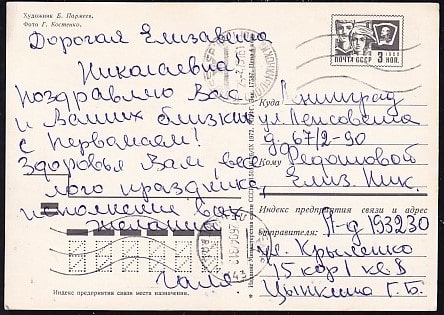 Художник Б. Пармеев.
Фото Г. Костенко.
Дорогая Елизавета
Николаевна!
Поздравляю Вас
и Ваших близких
с Первомаем!
Здоровья Вам, весе
лого праздника,
исполнения всех
желаний
Галя
Индекс предприятия связи места назначения.
ПОЧТА СССР
3 КОП.
Куда Ленинград
ул. Ленсовета
д. 67/2-90
Кому Федотовой
Елиз. Ник.
Индекс предприятия связи и адрес
отправителя: Л-д 193230
ул. Крыленко
15 кор 1 кв
Цыпкина Г. Б.